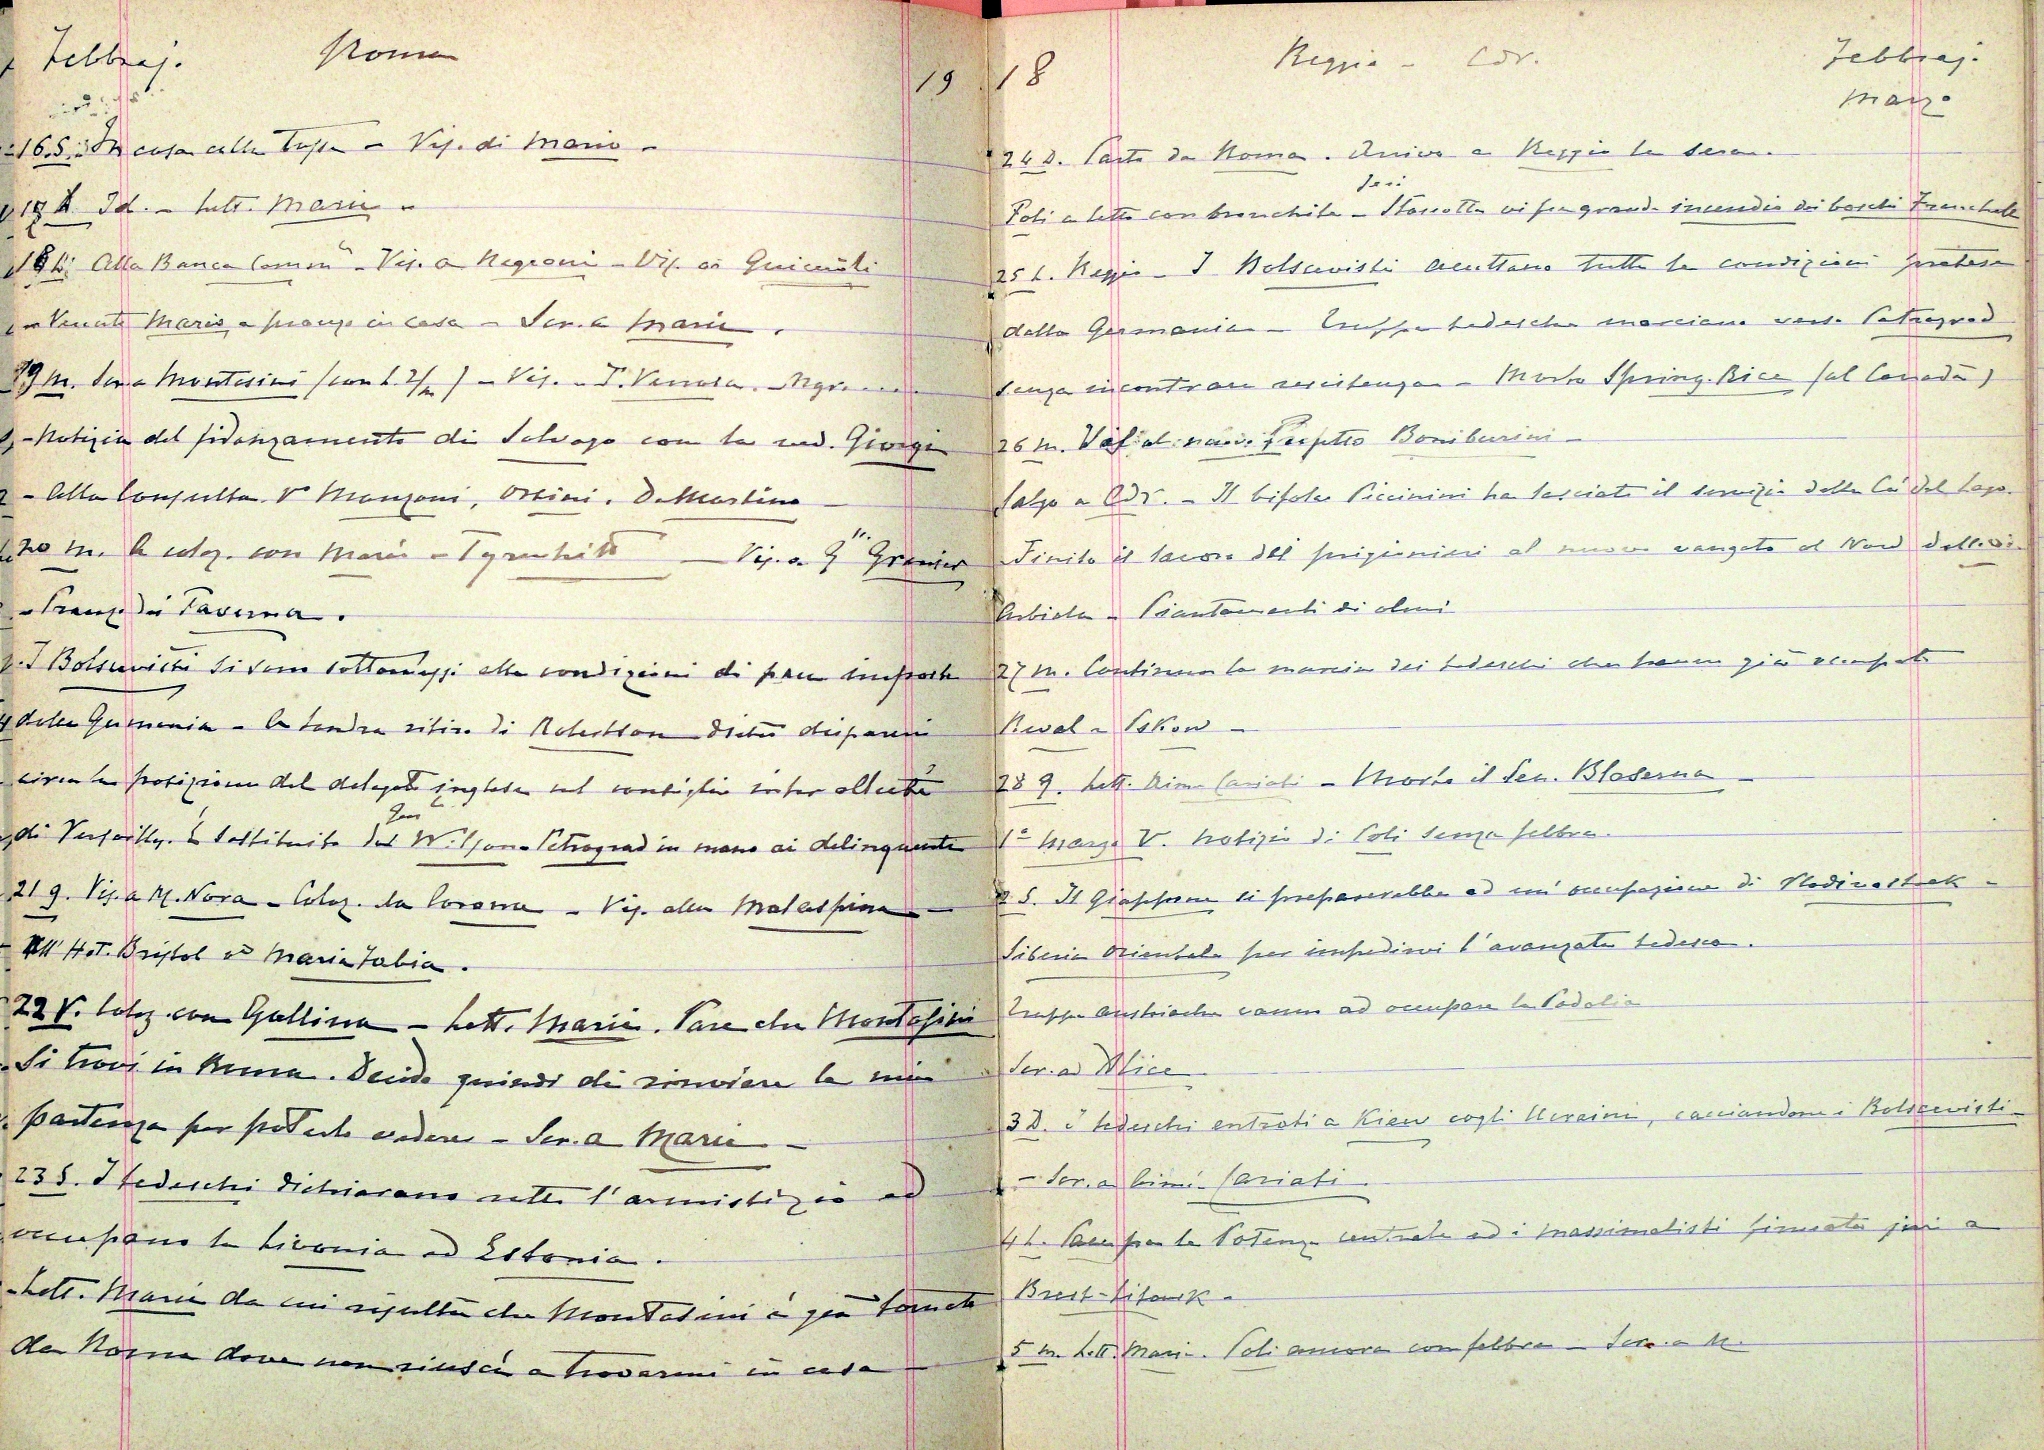 Febbraj. Roma 19
16. S. In casa colla tosse - Vis. di Mario -
17 D. Id. - Lett. Maria -
18 L. Alla Banca Comm - Vis. a Negroni - Vis. ai Guiccioli
- Venuto Mario a pranzo in casa - Scr. a Maria.
19 M. Scr. a Montesini (con L. 2/m) - Vis. a P. Venosa -
- Notizia del fidanzamento di Salvago con la ved. Giorgi
- Alla Consulta Vo Manzoni, Orsini, De Martino -
20 M. A colaz. con Maria - Tyrwhitt - Vis. a Granier
- Pranzo di Taverna.
- I Bolscevichi si sono sottomessi alle condizioni di pace imposte
dalla Germania - A Londra ritiro di Robertson dietro dispareri
circa la posizione del delegato inglese nel consiglio interalleato
di Versailles. È sostituito dal Gen Wilson - Petrograd in mano ai delinquenti
21 g. Vis. a M. Nora - Colaz. da Corona - Vis. alla Malaspina -
All' Hot. Bristol vo Maria Fabia.
22 V. Colaz. con Gallina - Lett. Maria. Pare che Montesini
si trovi in Roma. Decido quindi di rinviare la mia
partenza per poterlo vedere - Scr. a Maria -
23 S. I tedeschi dichiarano rotto l'armistizio ed
occupano la Livonia ed Estonia.
- Lett. Maria da cui risulta che Montesini è già tornato
da Roma dove non riuscì a trovarmi in casa -
18 Reggio - Cdr. Febbraj.
Marzo
24 D. Parto da Roma. Arrivo a Reggio la sera.
Ieri
Poli a letto con bronchite - vi fu grande incendio dei boschi Franchetti
25 L. Reggio - I Bolscevisti accettano tutte le condizioni pretese
dalla Germania - Truppe tedesche marciano verso Petrograd
senza incontrare resistenza - Morto Spring-Rice (al Canadà)
26 M. Vis. del nuovo Prefetto Boniburini -
Salgo a Cdr. - Il bifolco Piccinini ha lasciato il servizio della Cà del Lago.
Finito il lavoro dei prigionieri al nuovo vangato al Nord
- Piantamenti di olmi
27 M. Continua la marcia dei tedeschi che hanno già occupato
Reval - Pskow -
28 g. Lett. Cariati - Morto il Sen. Blaserna -
1° Marzo V. Notizie di Poli senza febbre.
2 S. Il Giappone si preparerebbe ad un' occupazione di Vladivostock -
Siberia Orientale per impedirvi l'avanzata tedesca.
Truppe austriache vanno ad occupare la Podolia
Scr. ad Alice
3 D. I tedeschi entrati a Kiew cogli Ucraini, cacciandone i Bolscevisti -
- Scr. a Cariati -
4 L. Pace fra le Potenze centrali ed i massimalisti firmata jeri a
Brest-Litowsk -
5 M. Lett. Maria. Poli ancora con febbre - Scr. a M.